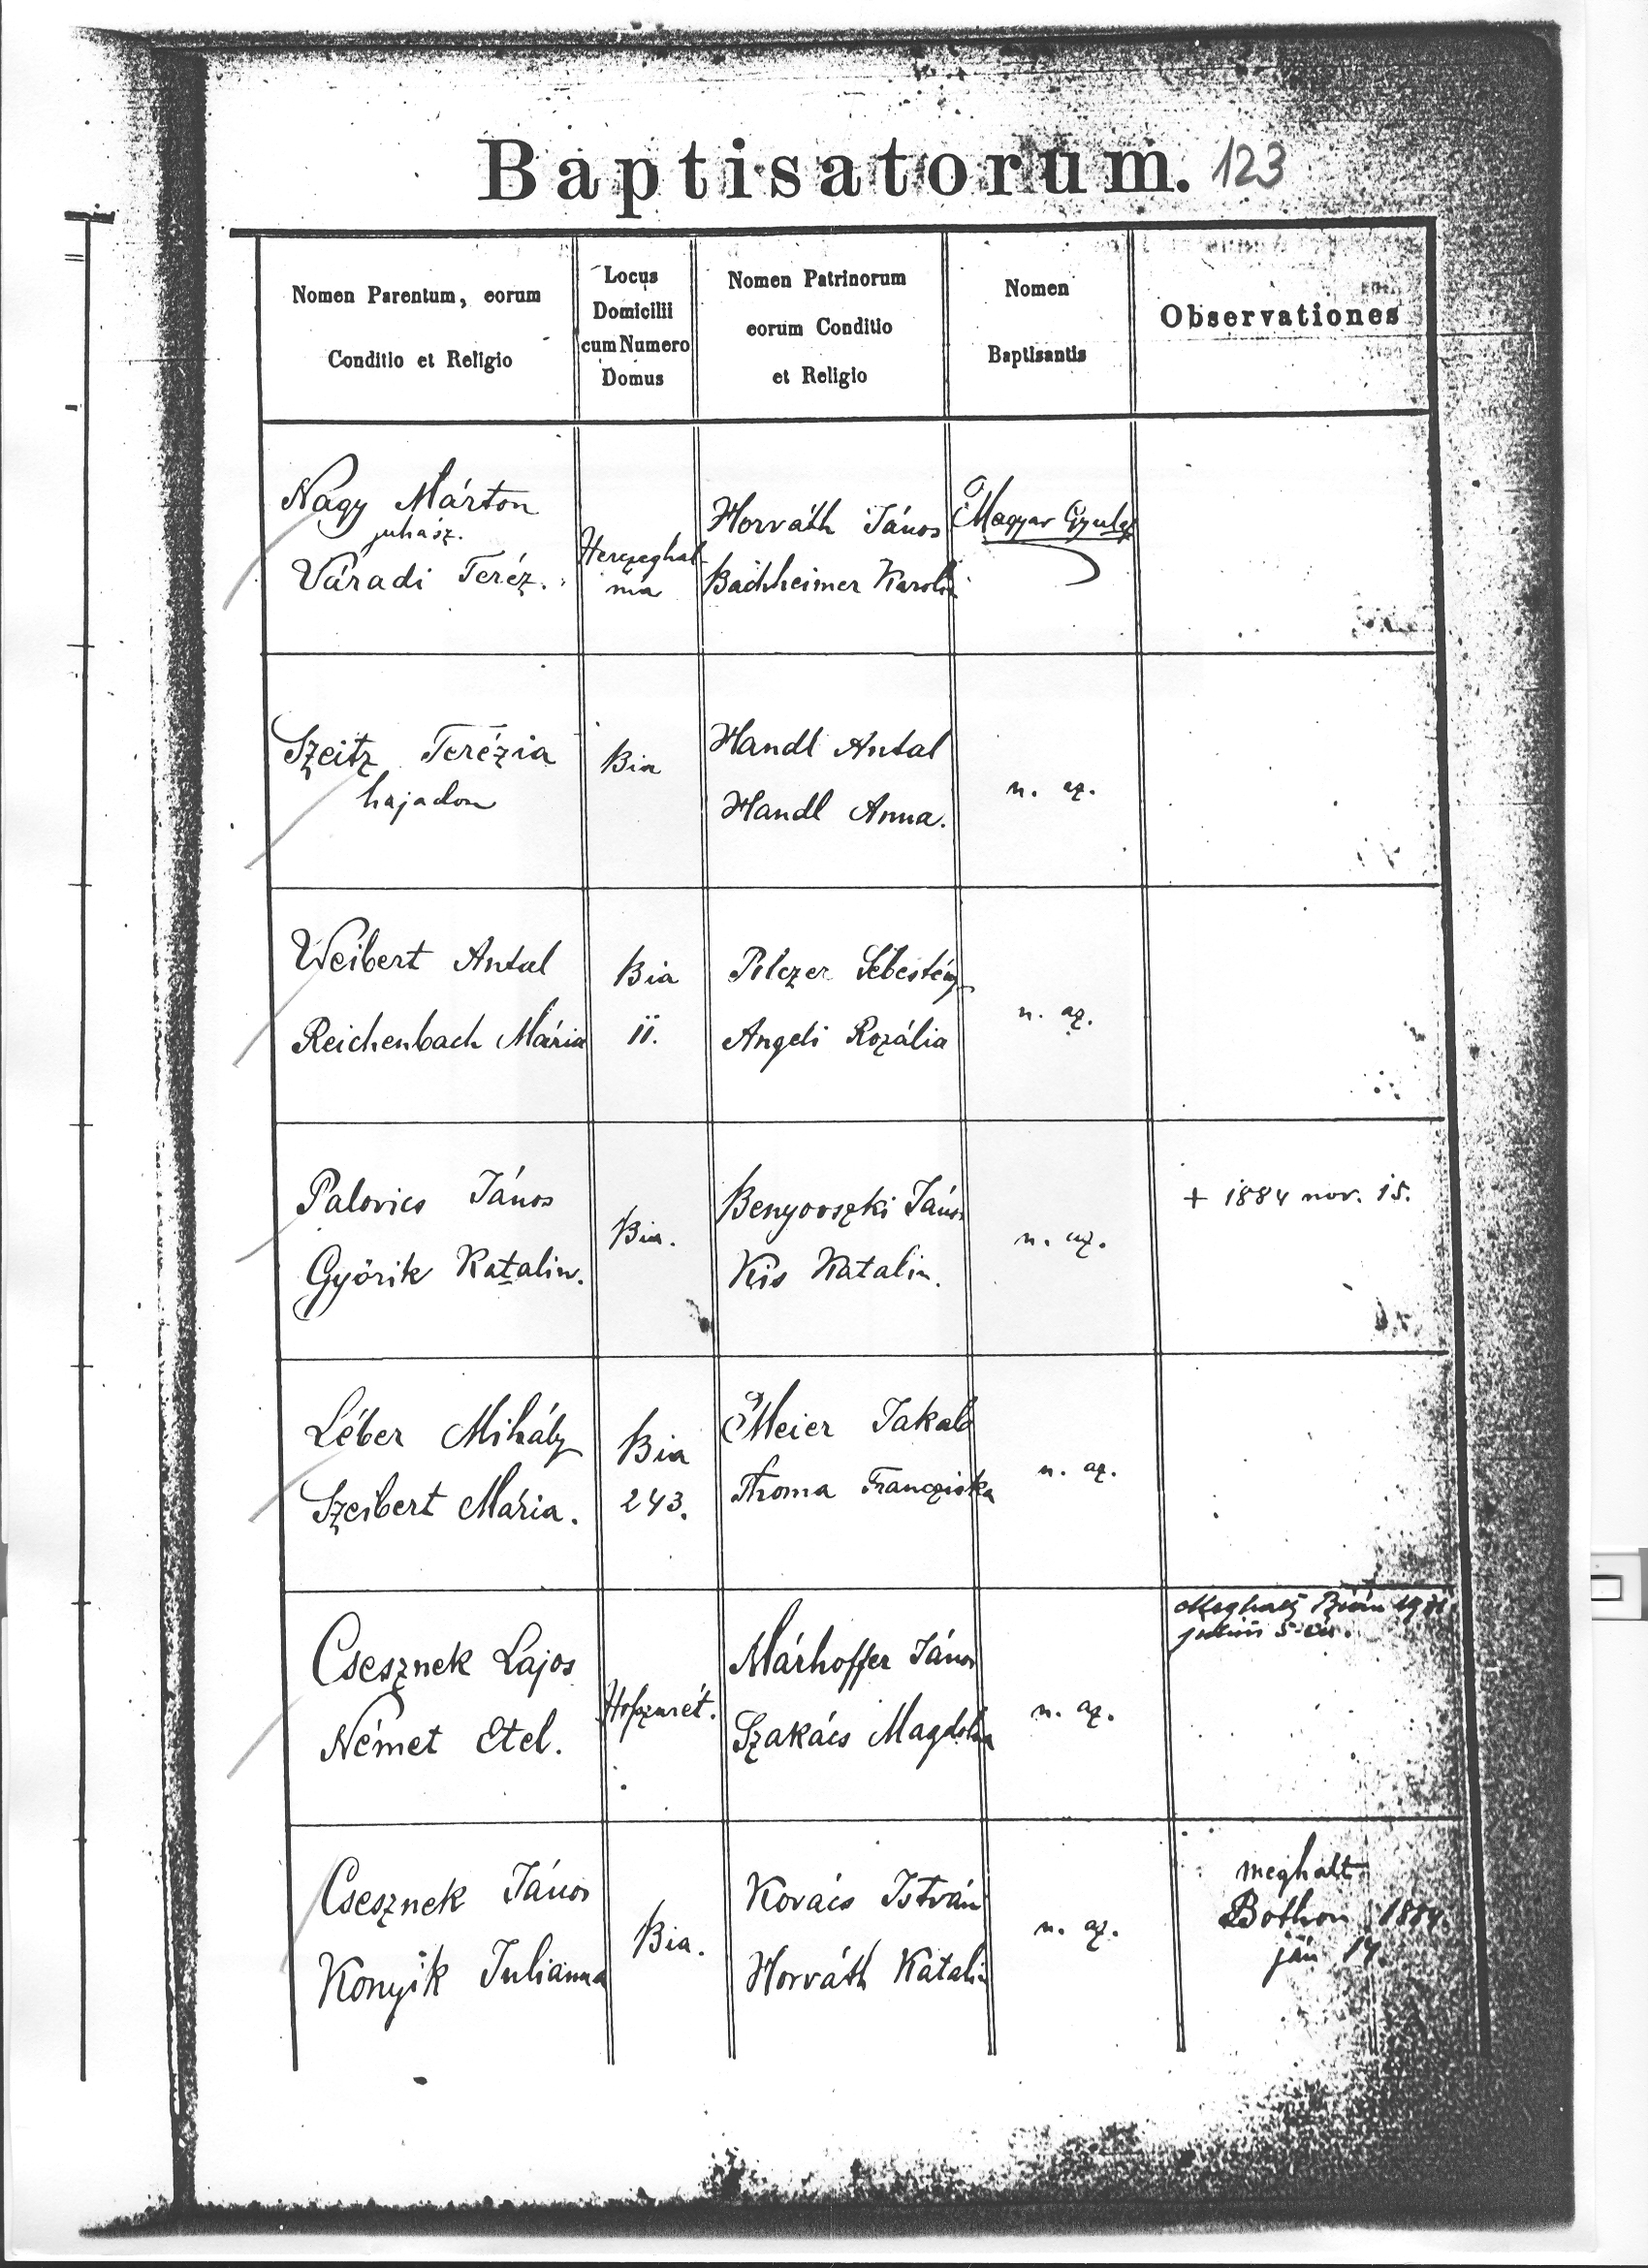 Baptisatorum. 123
Nomen Parentum, eorum
Conditio et Religio
Locus
Domicilii
cum Numero
Domus
Nomen Patrinorum
eorum Conditio
et Religio
Nomen
Baptisantis
Observationes
Nagy Márton
juhász.
Váradi Teréz.
Herczeghal-
ma
Horváth János
Bachheimer Karolin
Magyar Gyula
Szeitz Terézia
hajadon
Bia
Handl Antal
Handl Anna.
u. az.
Weibert Antal
Reichenbach Mária
Bia
11.
Pilczer Sebestény
Angeli Rozália
u. az.
Palovics János
Györik Katalin.
Bia.
Benyovszki János
Kis Katalin.
u. az.
+ 1884 nov. 15.
Léber Mihály
Szeibert Mária.
Bia
243.
Meier Jakab
Thoma Francziska
u. az.
Csesznek Lajos
Német Etel.
Márhoffer János
Szakács Magdolna
u. az.
Meghalt
5-én.
Csesznek János
Konyik Julianna
Bia.
Kovács István
Horváth Katalin
u. az.
meghalt
Bothon 1884.
ján 14.